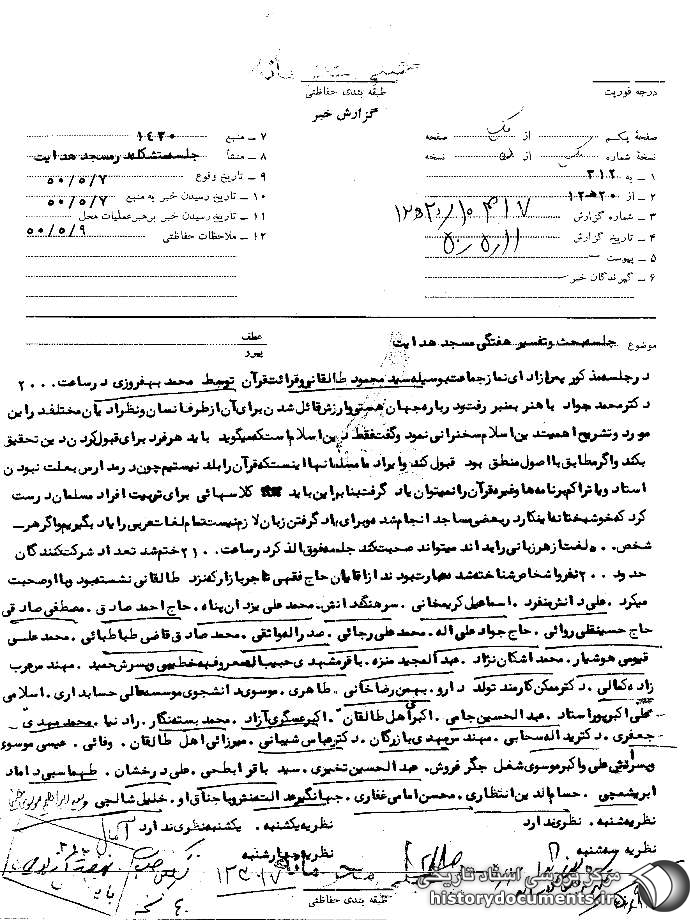 درجه فوریت
طبقه بندی حفاظتی
گزارش خبر
صفحهٔ یکم از یک صفحه
نسخهٔ شماره یک از نسخه
۱ ـ به ۳۱۲
۲ ـ از ۲۰ ه ۱۲
۳ ـ شماره گزارش
۴ ـ تاریخ گزارش
۵ ـ پیوست
۶ ـ گیرندگان خبر
۷ ـ منبع ۱۴۳۰
۸ ـ منشأ جلسه متشکله در مسجد هدایت
۹ ـ تاریخ وقوع ۵۰/۵/۷
۱۰ ـ تاریخ رسیدن خبر به منبع ۵۰/۵/۷
۱۱ ـ تاریخ رسیدن خبر برهبر عملیات محل ۵۰/۵/۹
۱۲ ـ ملاحظات حفاظتی
موضوع جلسه بحث و تفسیر هفتگی مسجد هدایت
عطف
پیرو
در جلسه مذکور پس از ادای نماز جماعت بوسیله سید محمود طالقانی و قرائت قرآن توسط محمد بهفروزی در ساعت ۲۰۰۰
دکتر محمد جواد باهنر بمنبر رفت و درباره جهان هستی و ارزش قائل شدن برای آن از طرف انسان و نظر ادیان مختلف در این
مورد و تشریح اهمیت دین اسلام سخنرانی نمود و گفت فقط دین اسلام است که میگوید باید هر فرد برای قبول کردن دین تحقیق
بکند و اگر مطابق با اصول منطق بود قبول کند و ایراد ما مسلمانها اینست که قرآن را بلد نیستیم چون در مدارس بعلت نبودن
استاد و یا تراکم برنامه‌ها و غیره قرآن را نمیتوان یاد گرفت بنابراین باید کلاسهائی برای تربیت افراد مسلمان درست
کرد که خوشبختانه اینکار در بعضی مساجد انجام شده و برای یاد گرفتن زبان لازم نیست تمام لغات عربی را یاد بگیریم و اگر هر ـ
شخص ۵۰۰ لغت از هر زبانی را بداند میتواند صحبت کند جلسه فوق الذکر در ساعت ۲۱۰۰ ختم شد تعداد شرکت کنندگان
حدود ۲۰۰ نفر و اشخاص شناخته شده عبارت بودند از آقایان حاج فقهی تاجر بازار که نزد طالقانی نشسته بود و با او صحبت
میکرد. علی دانش منفرد. اسماعیل کریمخانی. سرهنگ دانش. محمد علی یزدان پناه. حاج احمد صادق. مصطفی صادقی
حاج حسینقلی روائی. حاج جواد علی اله. محمد علی رجائی. صدراله واثقی. محمد صادق قاضی طباطبائی. محمد علی
قیومی هوشیار. محمد اشکان نژاد. عبدالمجید منزه. باقر مشهدی حبیب اله معروف به خطیبی و پسرش حمید. مهندس عرب
زاده کمالی. دکتر ممکن کارمند تولید دارو. بهمن رضا خانی. طاهری. موسوی دانشجوی موسسه عالی حسابداری. اسلامی
علی اکبر پور استاد. عبدالحسین جامی. اکبر اهل طالقان. اکبر عسگری آزاد. محمد بسته نگار. راد نیا. محمد مهدی
جعفری. دکتر یداله سحابی. مهندس مهدی بازرگان. دکتر عباس شیبانی. میرزائی اهل طالقان. وفائی. عیسی موسوی
و پسرانش علی و اکبر موسوی شغل جگر فروش. عبدالحسین تخیری. سید باقر ابطحی. علی درخشان. طهماسبی داماد
ابریشمچی. حسام الدین انتظاری. محسن امامی غفاری. جهانگیر عدالت منش و باجناق او. خلیل شالچی
نظریه شنبه. نظری ندارد
نظریه یکشنبه. یکشنبه نظری ندارد
نظریه سه شنبه
نظریه چهارشنبه
طبقه بندی حفاظتی
مرکز بررسی اسناد تاریخی
historydocuments.ir